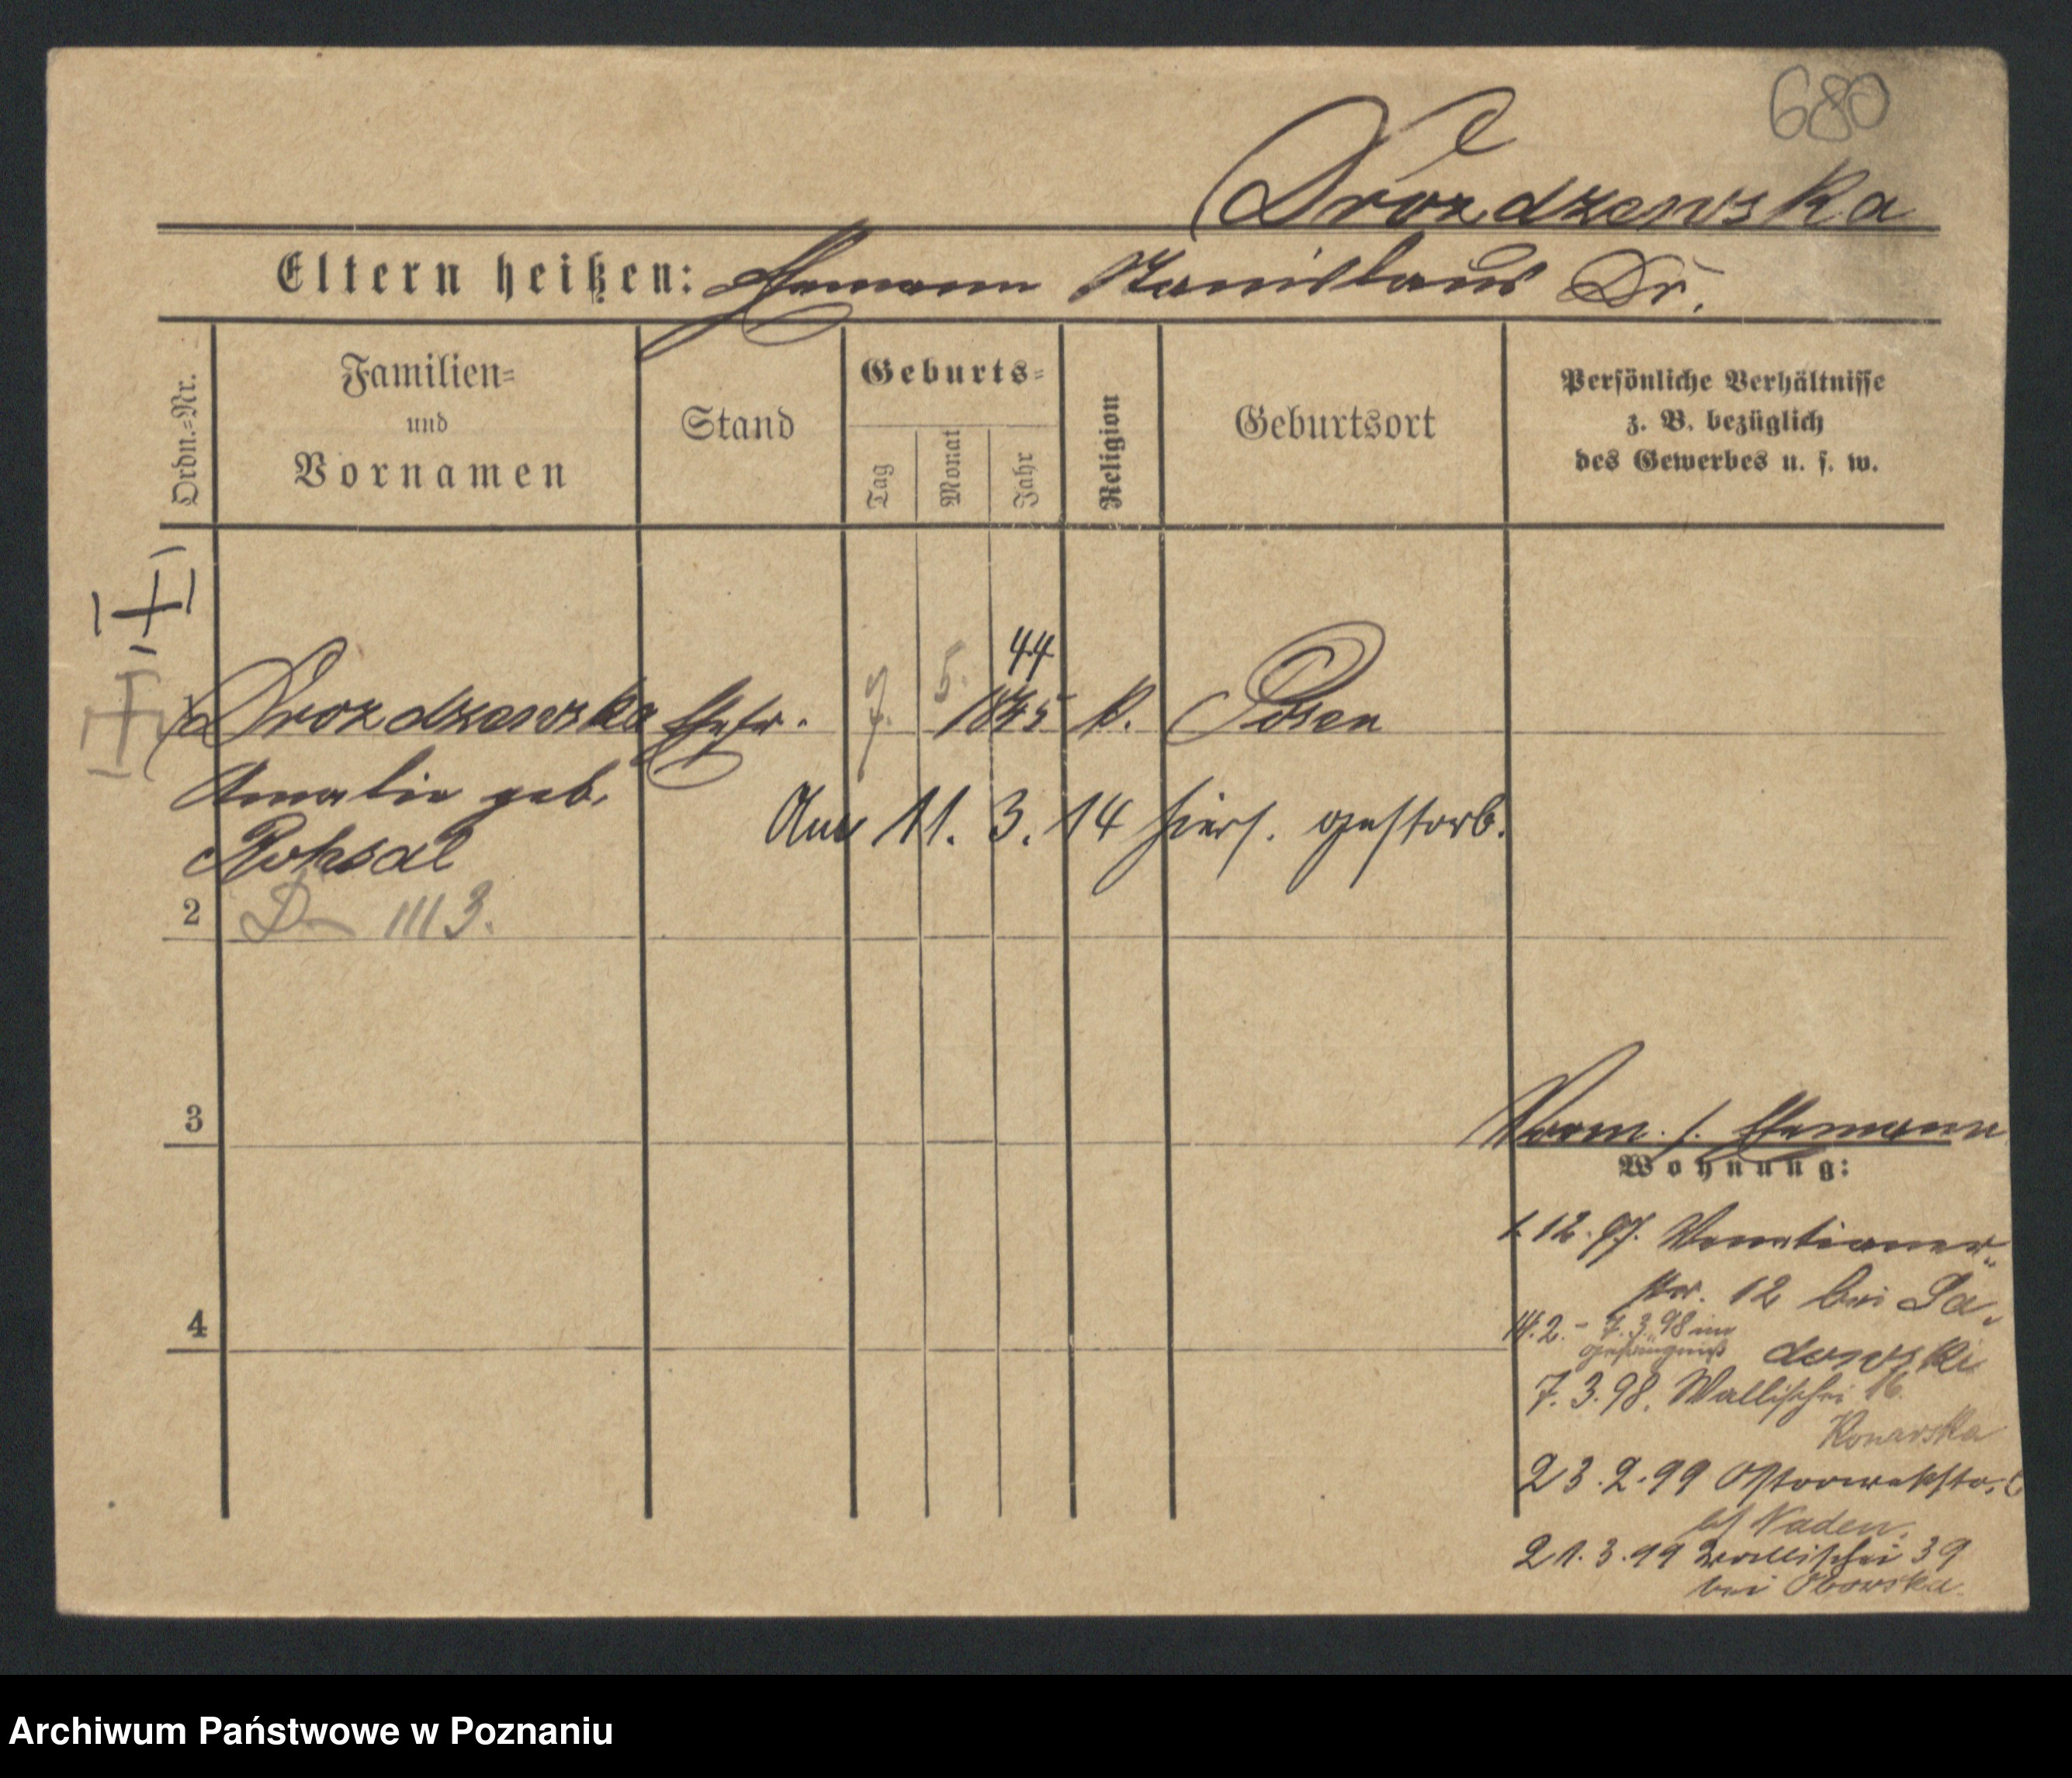 680
Drozdzewska
Eltern heißen: Ehemann Stanislaus Dr.
Ordn.=Nr.
Familien=
und
Vornamen
Stand
Geburts=
Tag
Monat
Jahr
Religion
Geburtsort
Persönliche Verhältnisse
z. B. bezüglich
des Gewerbes u. s. w.
44
Drozdzewska Ehefr. 7. 5. 1845 k. Posen
Amalie geb.
Am 11. 3. 14 hiers. gestorb.
2 D 1113.
3
Vorm. s. Ehemann
Wohnung:
1.12.97. Venetianer=
str. 12 bei Sa=
14.2. - 7.3.98 im
Gefängniß dowski
4
7.3.98. Wallischei 16.
Konarska
23.2.99 Ostrowekstr.
bei Naden.
21.3.99 Wallischei 39
bei Oborska.
Archiwum Państwowe w Poznaniu